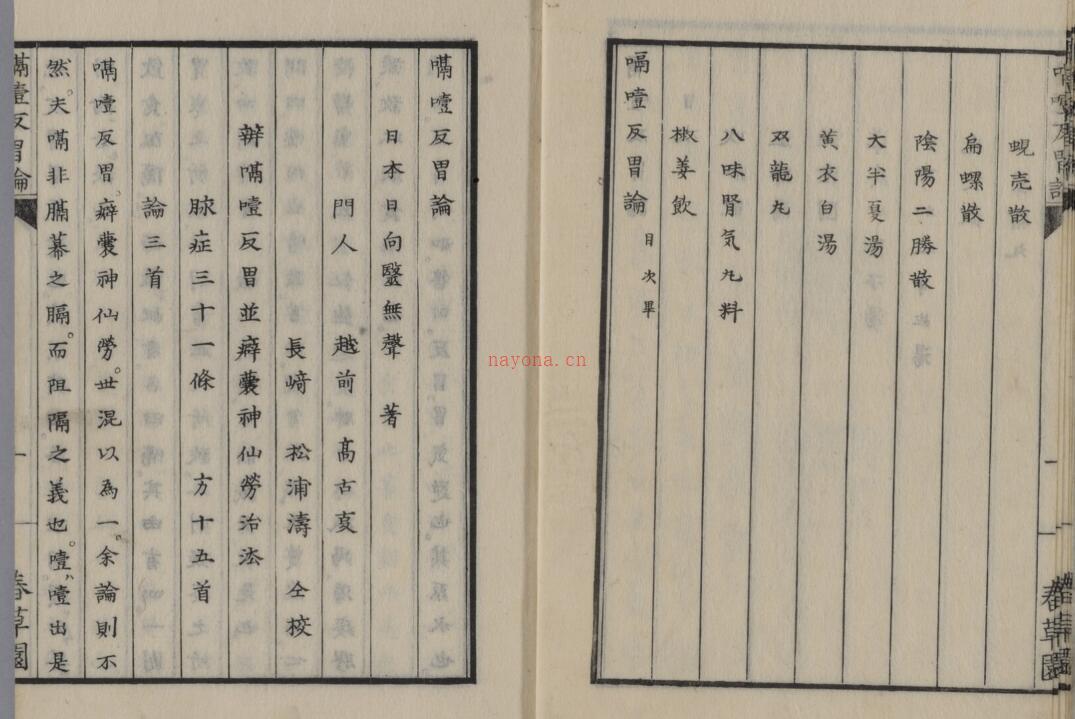 蜆壳散
扁螺散
陰陽二勝散
大半夏湯
黄衣白湯
双龍丸
八味腎気丸料
椒姜飲
嗝噎反胃論 目次畢
嗝噎反胃論
日本日向毉無聲 著
門人 越前 髙古夏
長﨑 松浦濤 仝校
辨嗝噎反胃並癖囊神仙勞治法
脉症三十一條 方十五首
論三首
嗝噎反胃。癖囊神仙勞。世混以為一。余論則不
然。夫嗝非膈幕之膈。而阻隔之義也。噎噎出是
嗝噎反胃論
一
春草園
nayona.cn